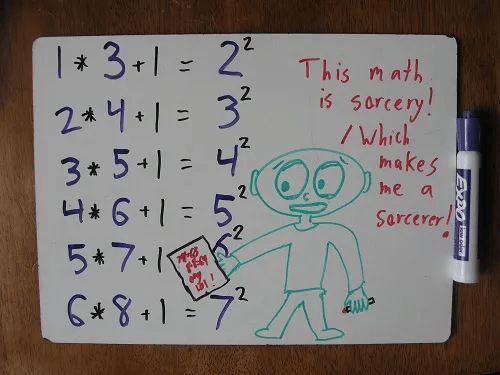 1 * 3 + 1 = 2²
2 * 4 + 1 = 3²
3 * 5 + 1 = 4²
4 * 6 + 1 = 5²
5 * 7 + 1 6²
6 * 8 + 1 = 7²
This math
is sorcery!
/Which
makes
me a
sorcerer!
EXPO